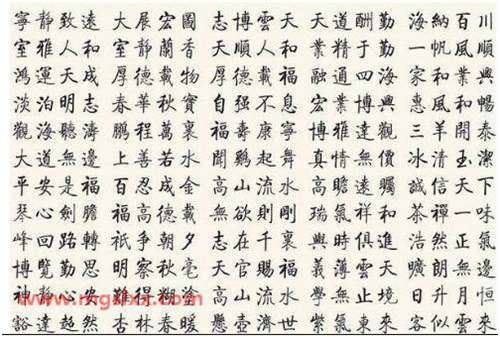 寧靜致遠 大展宏圖 志博雲天 天道酬勤 海納百川
室雅人和 室靜蘭香 大順人和 業精于勤 一帆風順
鴻運天成 厚德載物 厚德載福 融通四海 家和業興
淡泊明志 春華秋實 自强不息 宏業 惠風和暢
觀海聽濤 鵬程萬裏 福壽康寧 博雅達觀 三羊開泰
大道無邊 上善若水 聞鷄起舞 真情無價 冰清玉潔
平安是福 百忍成金 高山流水 高瞻遠矚 誠信天下
琴心劍膽 福高德載 無欲則剛 瑞氣祥和 茶禪一味
峰回路轉 祇爭朝夕 志在千裏 與時俱進 浩然正氣
博覽勤思 明察秋毫 天官賜福 義薄雲天 朗無邊
神静心安 難得糊塗 高山流水 學無止境 日升月恒
豁達超然 杏林春暖 懸壺濟世 紫氣東來 客似雲來